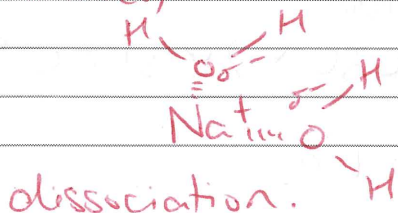 H H
Oδ-
δ- H
Na+ O
H
dissociation.